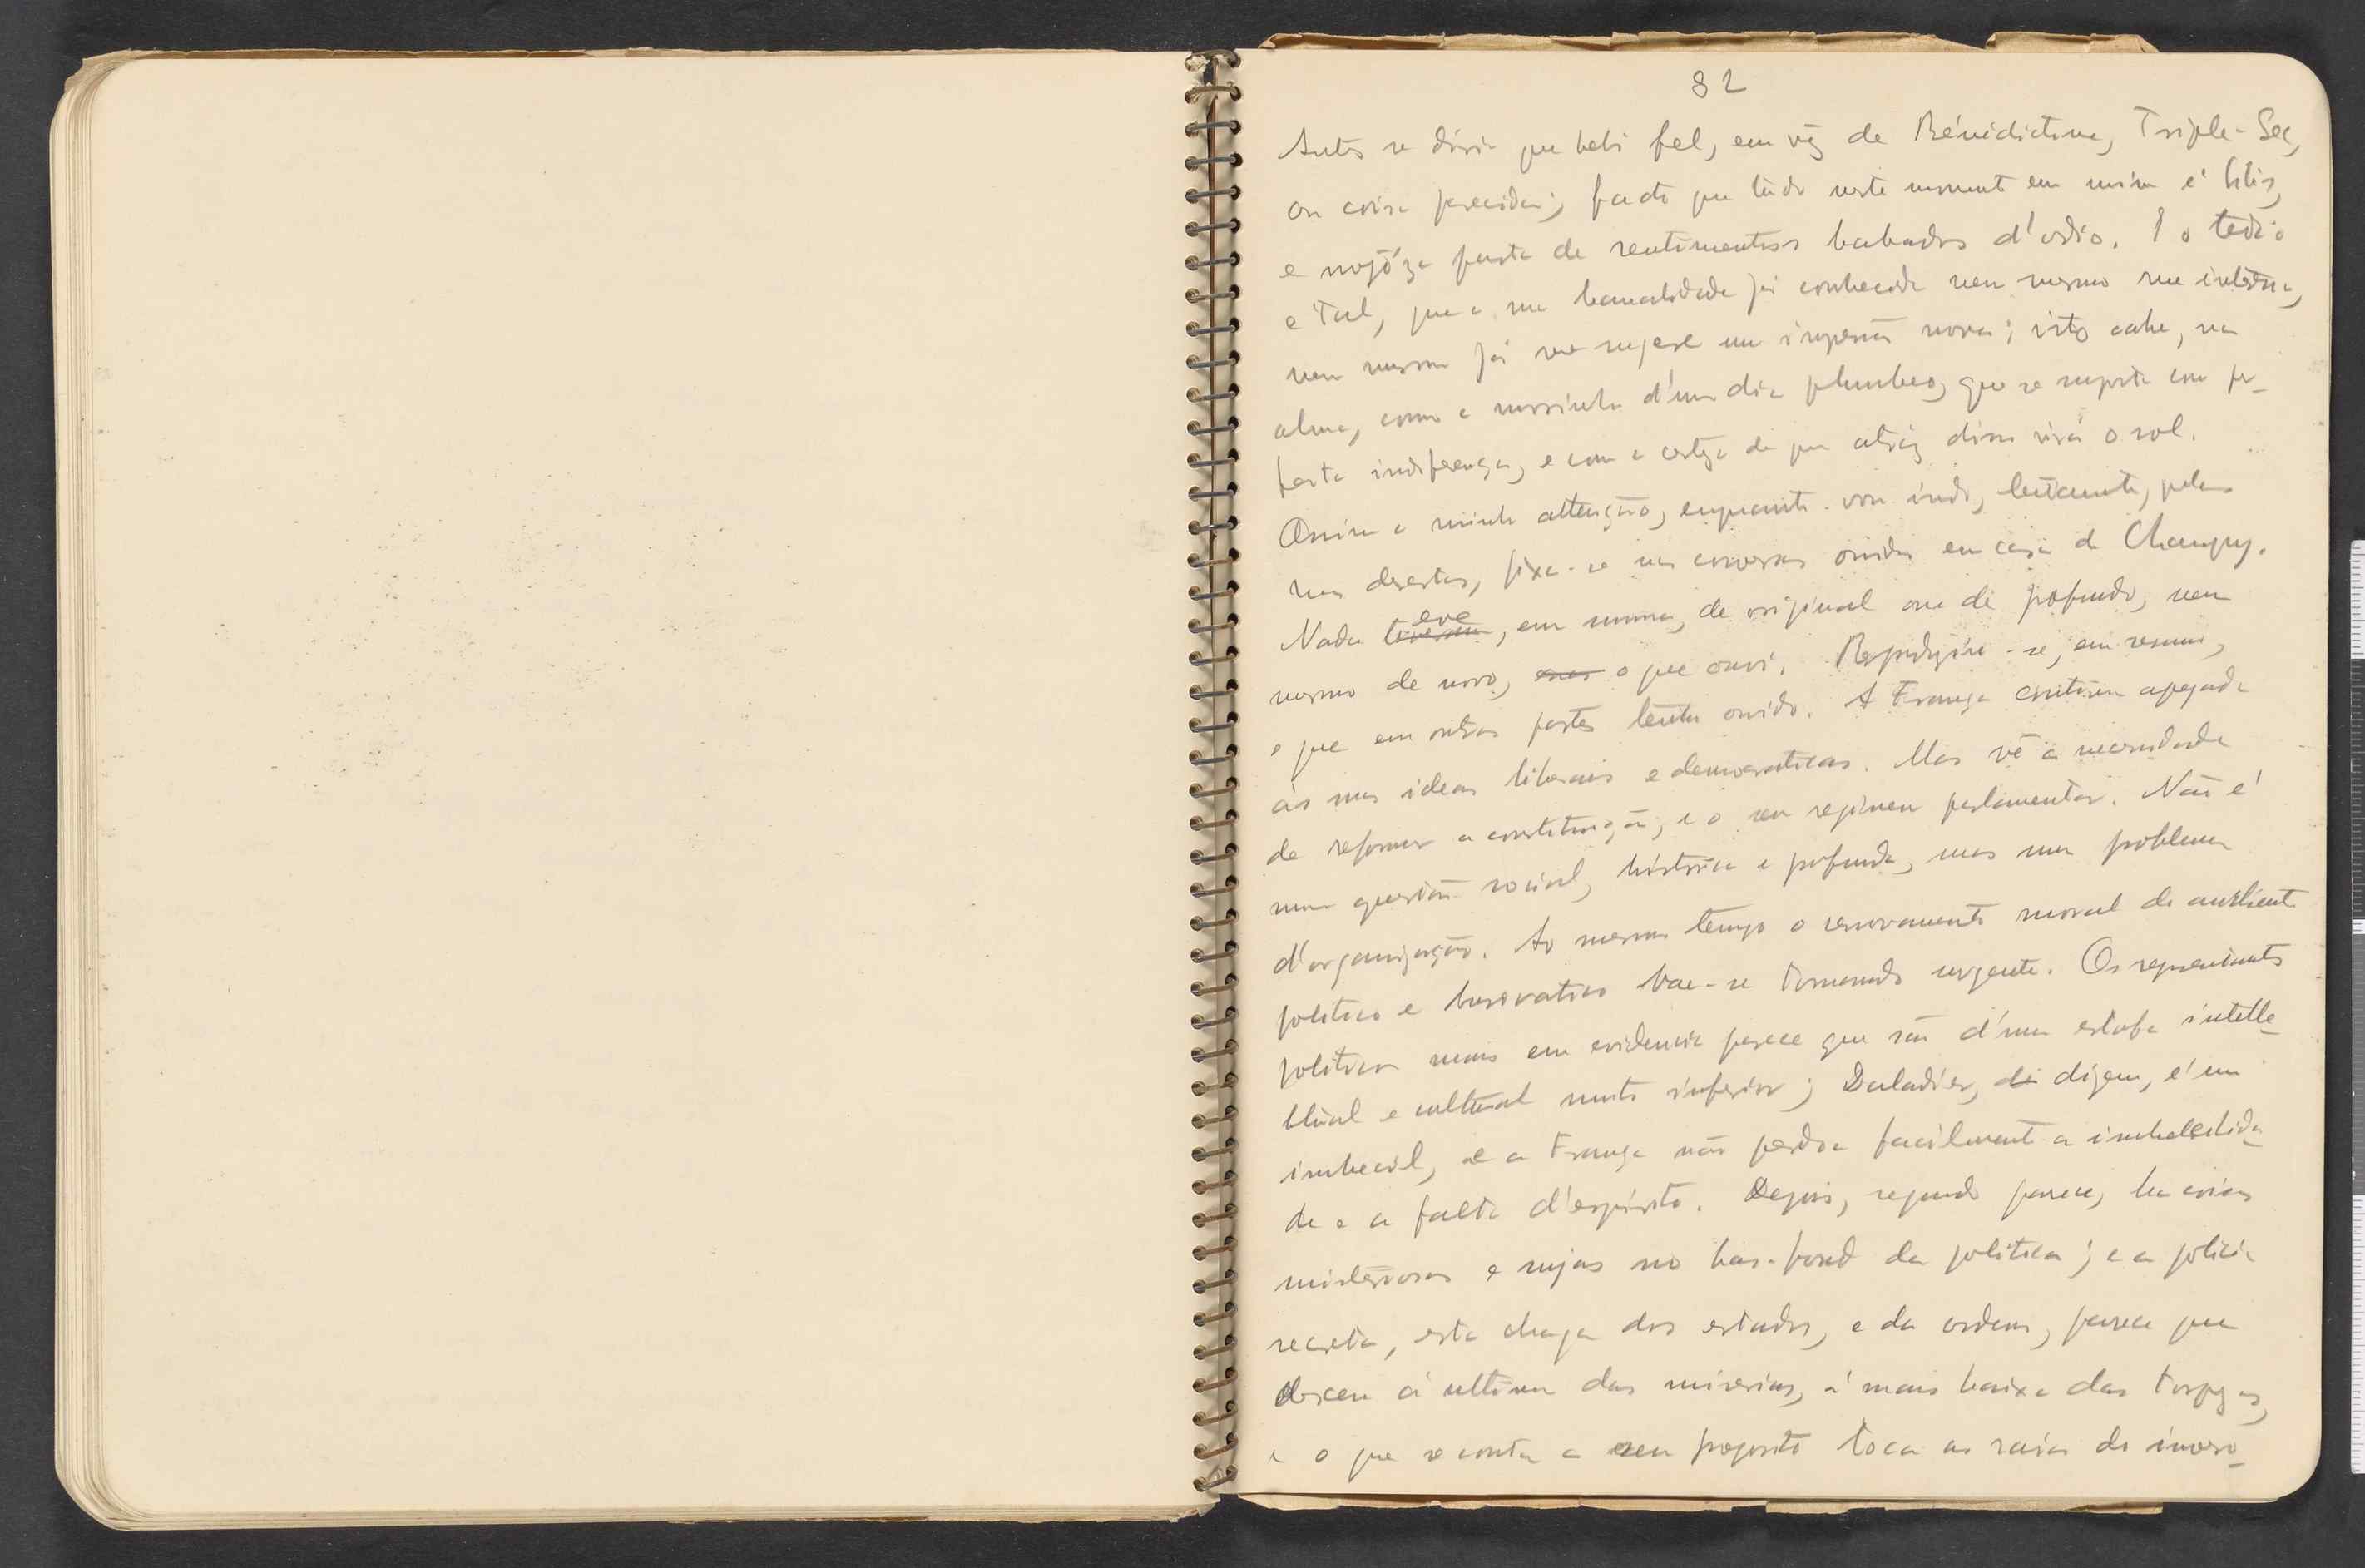 82
Antes se diria que bebi fel, em vez de Bénédictine, Triple-Sec,
ou coisa parecida; facto que tudo neste momento em mim é bilis,
e nojóza pasta de sentimentos babados d'odio. E o tedio
é tal, que a sua banalidade já conhecida nem mesmo me
nem mesmo já me sugere um nova; isto cahe, na
alma, como a morrinha d'um dia plumbeo, que se suporta com per-
feita indiferença, e com a certeza de que atraz disso virá o sol.
Assim a minha attenção, enquanto vou indo, lentamente, pelas
ruas desertas, fixa-se nas conversas ouvidas em casa de Champy.
Nada teve, em suma, de original ou de profundo, nem
mesmo de novo, o que ouvi. -se, em resumo,
o que em outras partes tenho ouvido. A França continua apegada
ás suas ideas liberais e democraticas. Mas vê a necessidade
de reformar a constituição, e o seu regimen parlamentar. Não é
uma questão social, historica e profunda, mas um problema
d'organização. Ao mesmo tempo o renovamento moral do ambiente
politico e burocratico vae-se tornando urgente. Os representantes
politicos mais em evidencia parece que são d'uma estofa intelle-
ctual e cultural muito inferior; Daladier, dizem, é um
imbecil, e a França não perdoa facilmente a imbecilida-
de e a falta d'espirito. Depois, segundo parece, ha coisas
misteriosas e sujas no bas-fond da politica; e a policia
secreta, esta chaga dos estados, e da ordem, parece que
desceu á ultima das miserias, á mais baixa das torpezas,
e o que se conta a seu proposito toca as raias do invero-